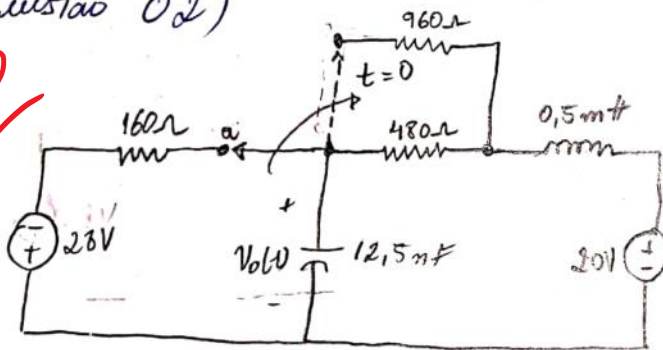 02)
960Ω
t=0
160Ω
a
480Ω
0,5mH
- +
28V
+
Vo(t)
12,5nF
-
+ -
20V